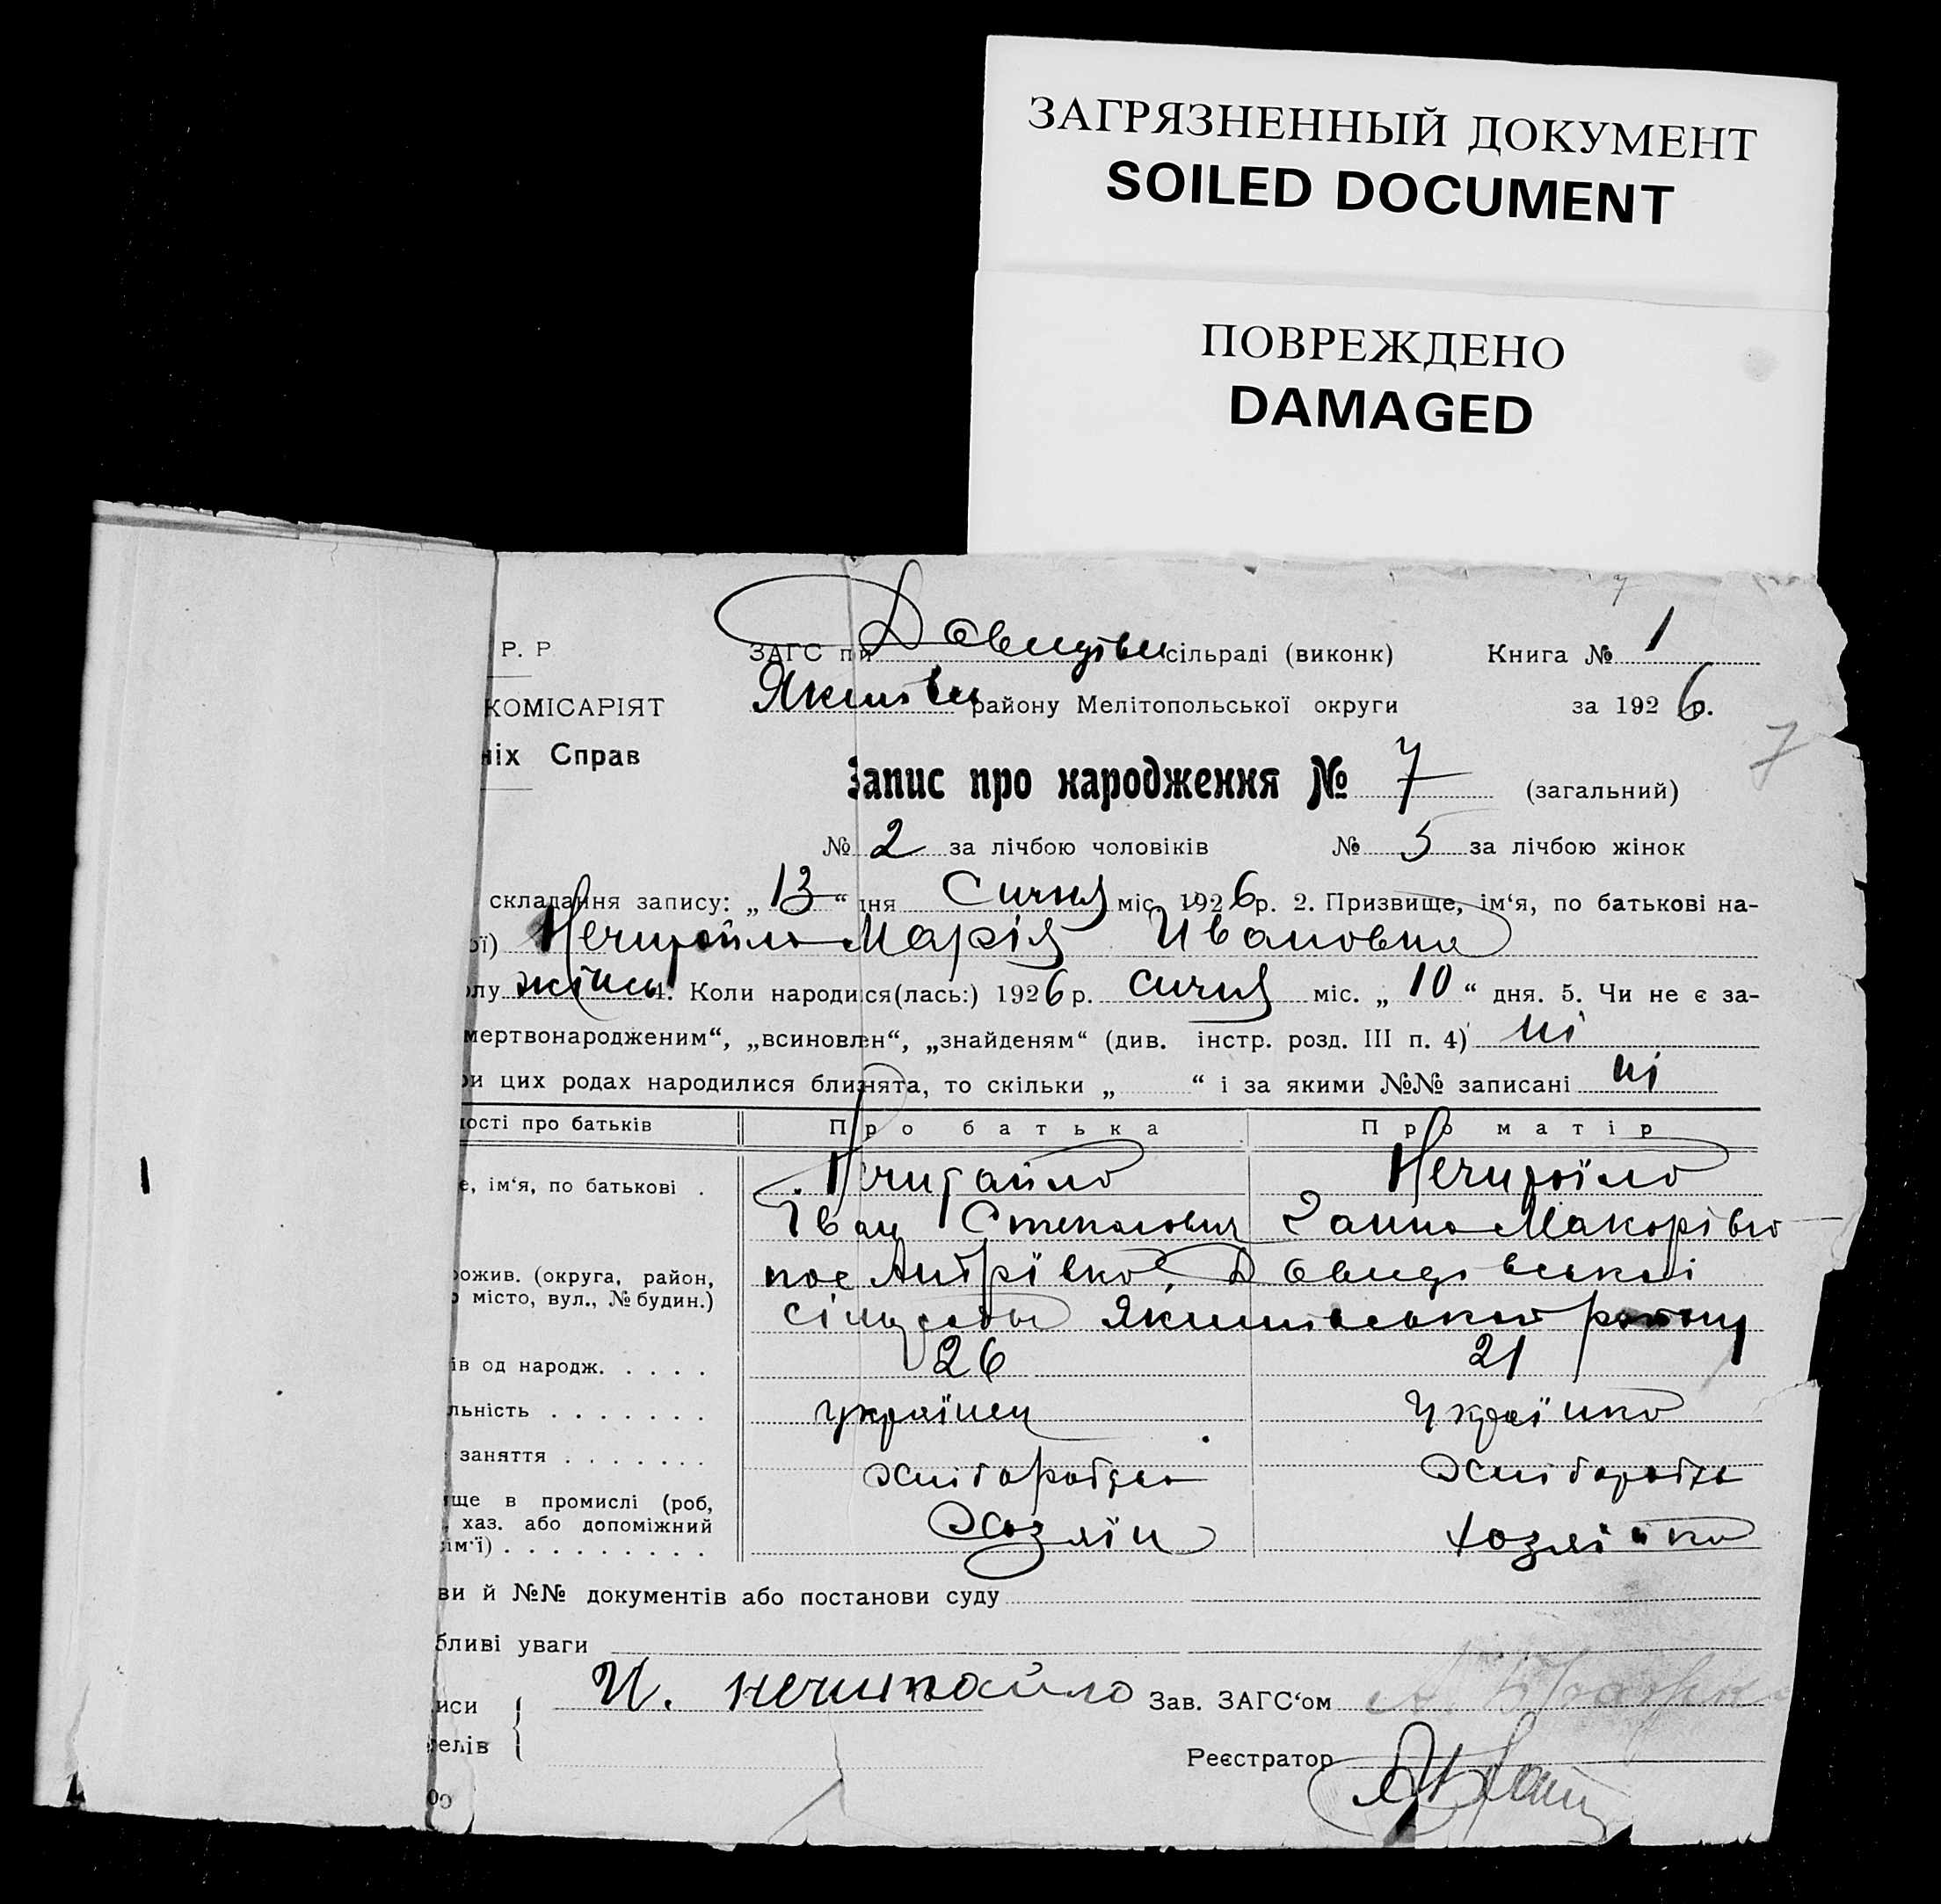 ЗАГРЯЗНЕННЫЙ ДОКУМЕНТ
SOILED DOCUMENT
ПОВРЕЖДЕНО
DAMAGED
7
Р. Р
ЗАГС при Давидівці сільраді (виконк) Книга № 1
КОМІСАРІЯТ
Якимівц району Мелітопольської округи за 1926 р.
ніх Справ
7
Запис про народження № 7 (загальний)
№ 2 за лічбою чоловіків № 5 за лічбою жінок
складання запису: „13“ дня Січня міс. 1926 р. 2. Призвище, ім‘я, по батькові на-
ої) Нечипайло Марія Ивановна
олу жіноч 4. Коли народився(лась:) 1926 р. січня міс. „10“ дня. 5. Чи не є за-
мертвонародженим“, „всиновлен“, „знайденям“ (див. інстр. розд. III п. 4) ні
ри цих родах народилися близнята, то скільки „ “ і за якими №№ записані ні
ності про батьків Про батька Про матір
е, ім‘я, по батькові . Нечипайло Нечипайло
Іван Степанович Ганна Макарівна
рожив. (округа, район,
о місто, вул., № будин.)
пос Давидівської
сільради Якимівського району
ів од народж. . . . . 26 21
льність . . . . . . . українец українка
заняття . . . . . . . хліборобство хліборобст
ще в промислі (роб,
хаз. або допоміжний
ім‘ї) . . . . . . . . . хозяїн хозяїка
ви й №№ документів або постанови суду
бливі уваги
иси И. нечипайло Зав. ЗАГС‘ом
елів Реєстратор